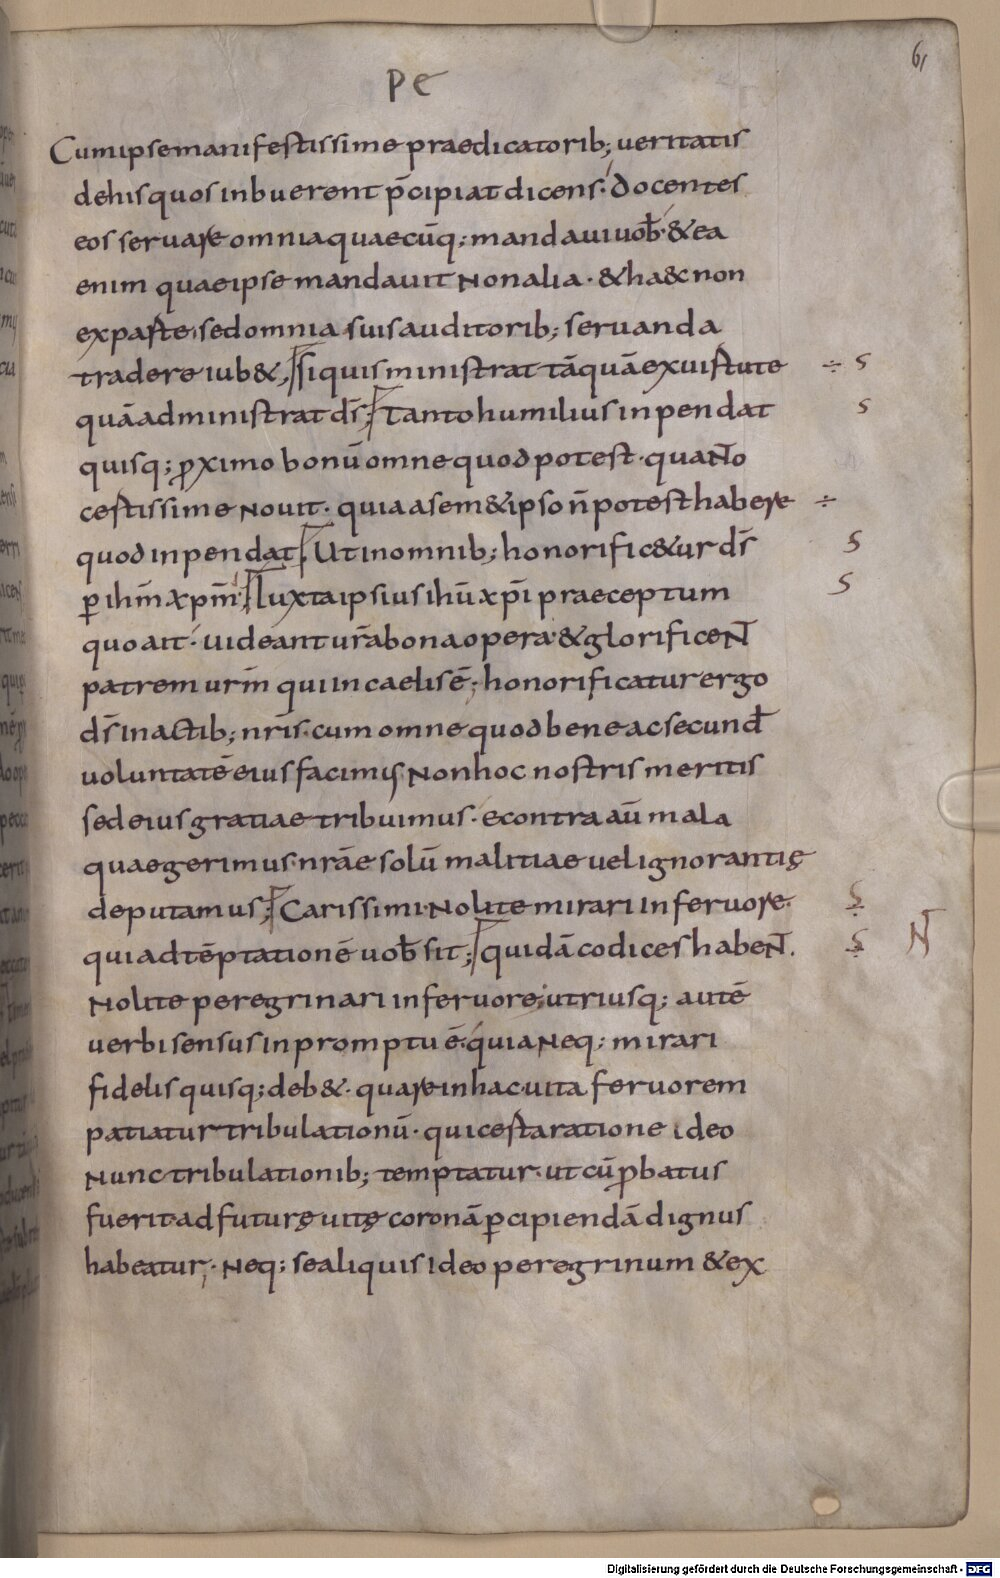 61
PE
Cum ipse manifestissime praedicatorib; ueritatis
de his quos inbuerent p̄cipiat dicens. docentes
eos seruare omnia quaecūq; mandaui uob̄. & ea
enim quae ipse mandauit Non alia. & ha&c non
ex parte. sed omnia suis auditorib; seruanda
tradere iub&; Siquis ministrat tāquā ex uirtute ÷ s
quā administrat d̄s; Tanto humilius inpendat s
quisq; ꝓximo bonū omne quod potest. quaNto
certissime Nouit. quia a sem&ipso n̄ potest habere ÷
quod inpendat; Ut in omnib; honorific&ur d̄s s
ꝑ ih̄m xp̄m; Iuxta ipsius ih̄u xp̄i praeceptum s
quo ait. uideant ur̄a bona opera. & glorificeNT̄
patrem ur̄m qui in caelis ē; honorificatur ergo
d̄s in actib; nr̄is. cum omne quod bene ac secund̄
uoluntatē eius facimus, Non hoc nostris meritis
sed eius gratiae tribuimus. econtra aū mala
quae gerimus nr̄ae solū malitiae uel ignorantię
deputamus; Carissimi Nolite mirari in feruore. s
qui ad tēptationē uob̄ fit; quidā codices habeNT̄. s NT̄
Nolite peregrinari in feruore; utriusq; autē
uerbi sensus in promptu ē. quia Neq; mirari
fidelis quisq; deb&. quare in hac uita feruorem
patiatur tribulationū. qui certa ratione ideo
Nunc tribulationib; temptatur. ut cū ꝓbatus
fuerit ad futurę uitę coronā ꝑcipiendā dignus
habeatur. Neq; se aliquis ideo peregrinum & ex
Digitalisierung gefördert durch die Deutsche Forschungsgemeinschaft - DFG